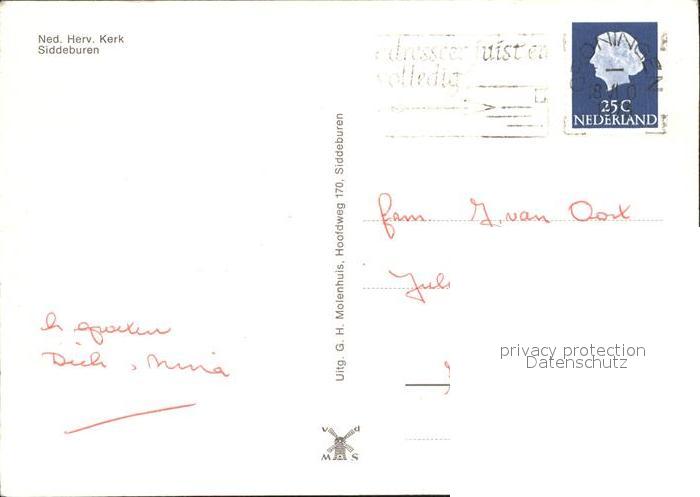 Ned. Herv. Kerk
Siddeburen
adresseer juist en
volledig
GRONINGEN
25 C
NEDERLAND
Uitg. G. H. Molenhuis, Hoofdweg 170, Siddeburen
fam J. van Oost
Juli
h. groeten
Dick, Mina
privacy protection
Datenschutz
v d
M S